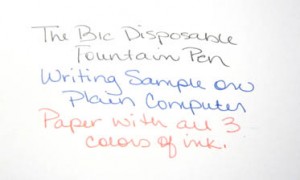 The Bic Disposable
Fountain Pen
Writing Sample on
Plain Computer
Paper with all 3
colors of ink.